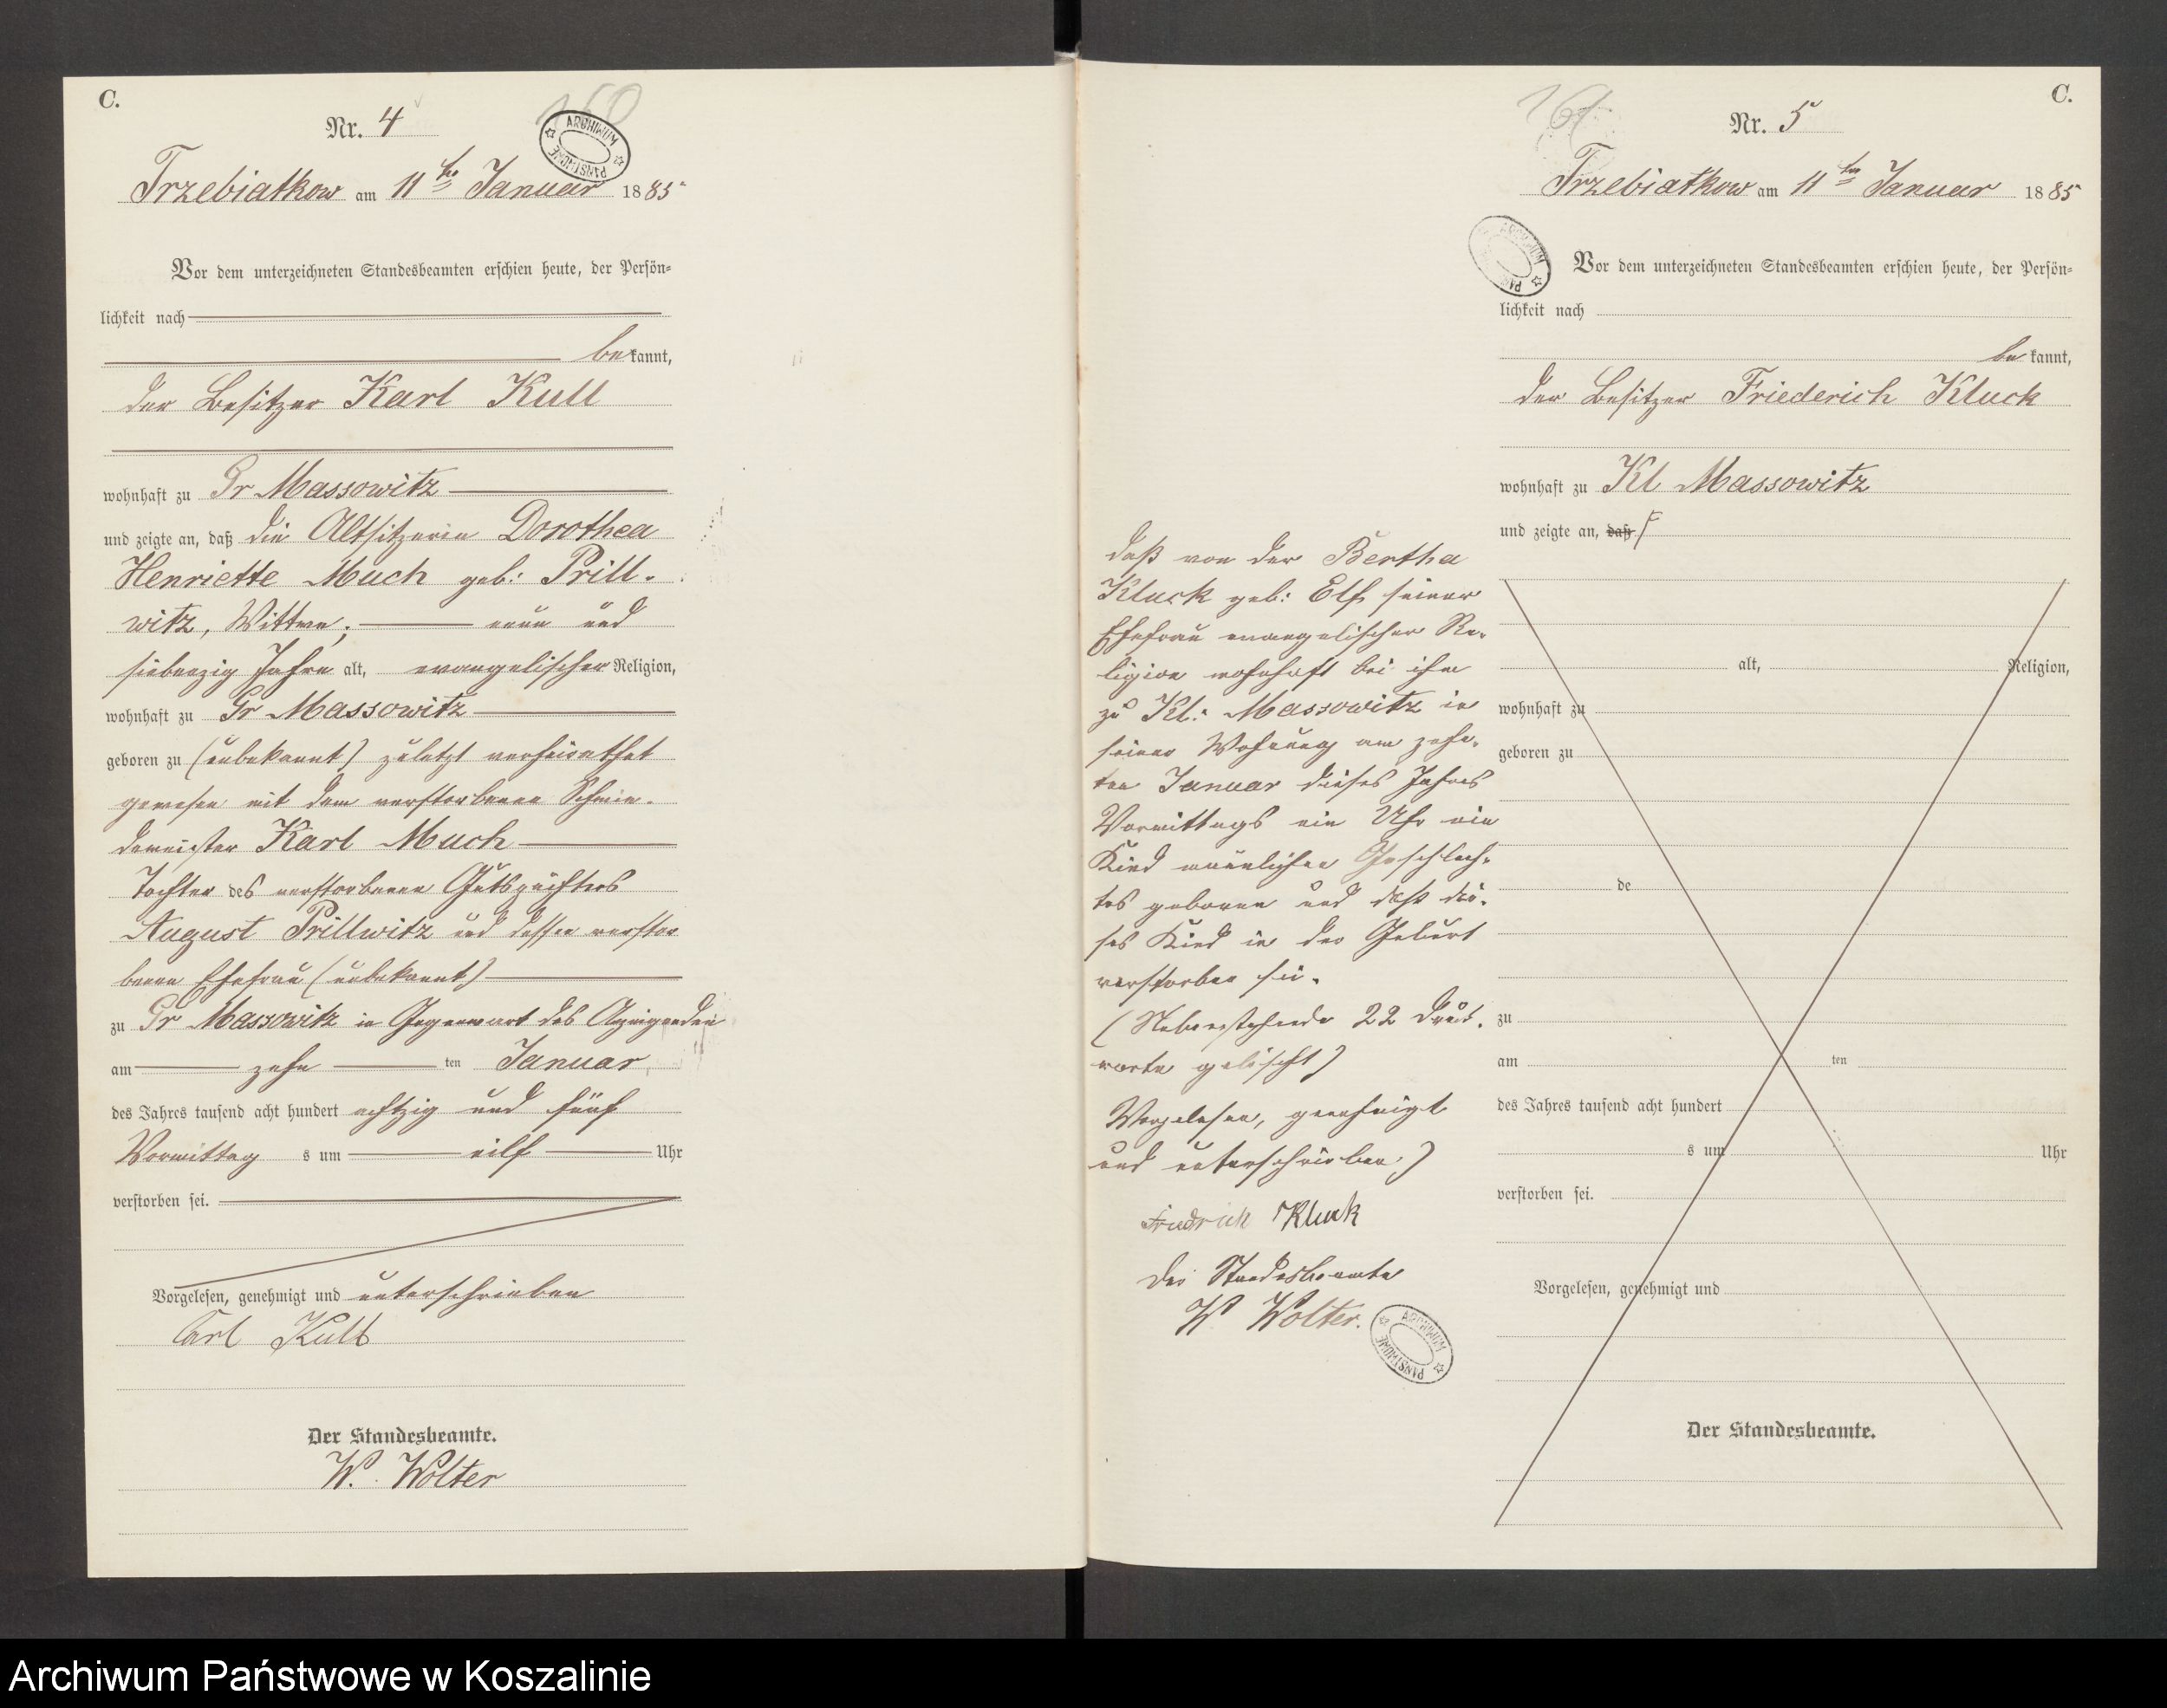 C.
160
Nr. 4
ARCHIWUM PAŃSTWOWE
Trzebiatkow am 11ten Januar 1885
Vor dem unterzeichneten Standesbeamten erschien heute, der Persön-
lichkeit nach
bekannt,
der Besitzer Karl Kull
wohnhaft zu Gr Massowitz
und zeigte an, daß die Altsitzerin Dorothea
Henriette Much geb: Prill-
witz, Wittwe, neun und
siebenzig Jahre alt, evangelischer Religion,
wohnhaft zu Gr Massowitz
geboren zu (unbekannt) zuletzt verheirathet
gewesen mit dem verstorbenen Schmie-
demeister Karl Much
Tochter des verstorbenen Gutspächters
August Prillwitz und dessen verstor
benen Ehefrau (unbekannt)
zu Gr Massowitz in Gegenwart des Anzeigenden
am zehn ten Januar
des Jahres tausend acht hundert achtzig und fünf
Vormittag s um eilf Uhr
verstorben sei.
Vorgelesen, genehmigt und unterschrieben
Carl Kull
Der Standesbeamte.
W. Wolter
161
C.
Nr. 5
Trzebiatkow am 11ten Januar 1885
ARCHIWUM PAŃSTWOWE
Vor dem unterzeichneten Standesbeamten erschien heute, der Persön-
lichkeit nach
bekannt,
der Besitzer Friederich Kluck
wohnhaft zu Kl Massowitz
und zeigte an, daß
daß von der Bertha
Kluck geb: Elf seiner
Ehefrau evangelischer Re-
ligion wohnhaft bei ihm
zu Kl: Massowitz in
seiner Wohnung am zehn-
ten Januar dieses Jahres
Vormittags ein Uhr ein
Kind männlichen Geschlech-
tes geboren und daß die-
ses Kind in der Geburt
verstorben sei.
(Nebenstehende 22 Druck-
worte gelöscht)
Vorgelesen, genehmigt
und unterschrieben)
Friedrich Kluck
Der Standesbeamte
W Wolter.
ARCHIWUM PAŃSTWOWE
alt, Religion,
wohnhaft zu
geboren zu
de
zu
am ten
des Jahres tausend acht hundert
s um Uhr
verstorben sei.
Vorgelesen, genehmigt und
Der Standesbeamte.
Archiwum Państwowe w Koszalinie